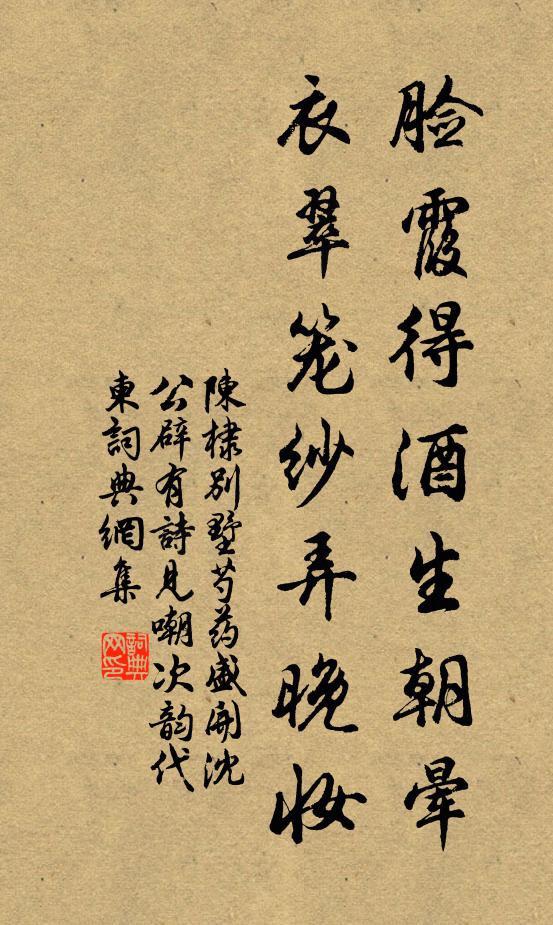 脸霞得酒生朝晕
衣翠笼纱弄晚妆
陳棣别墅芍药盛開沈
公辟有詩見嘲次韵代
東詞典網集
詞典
网印